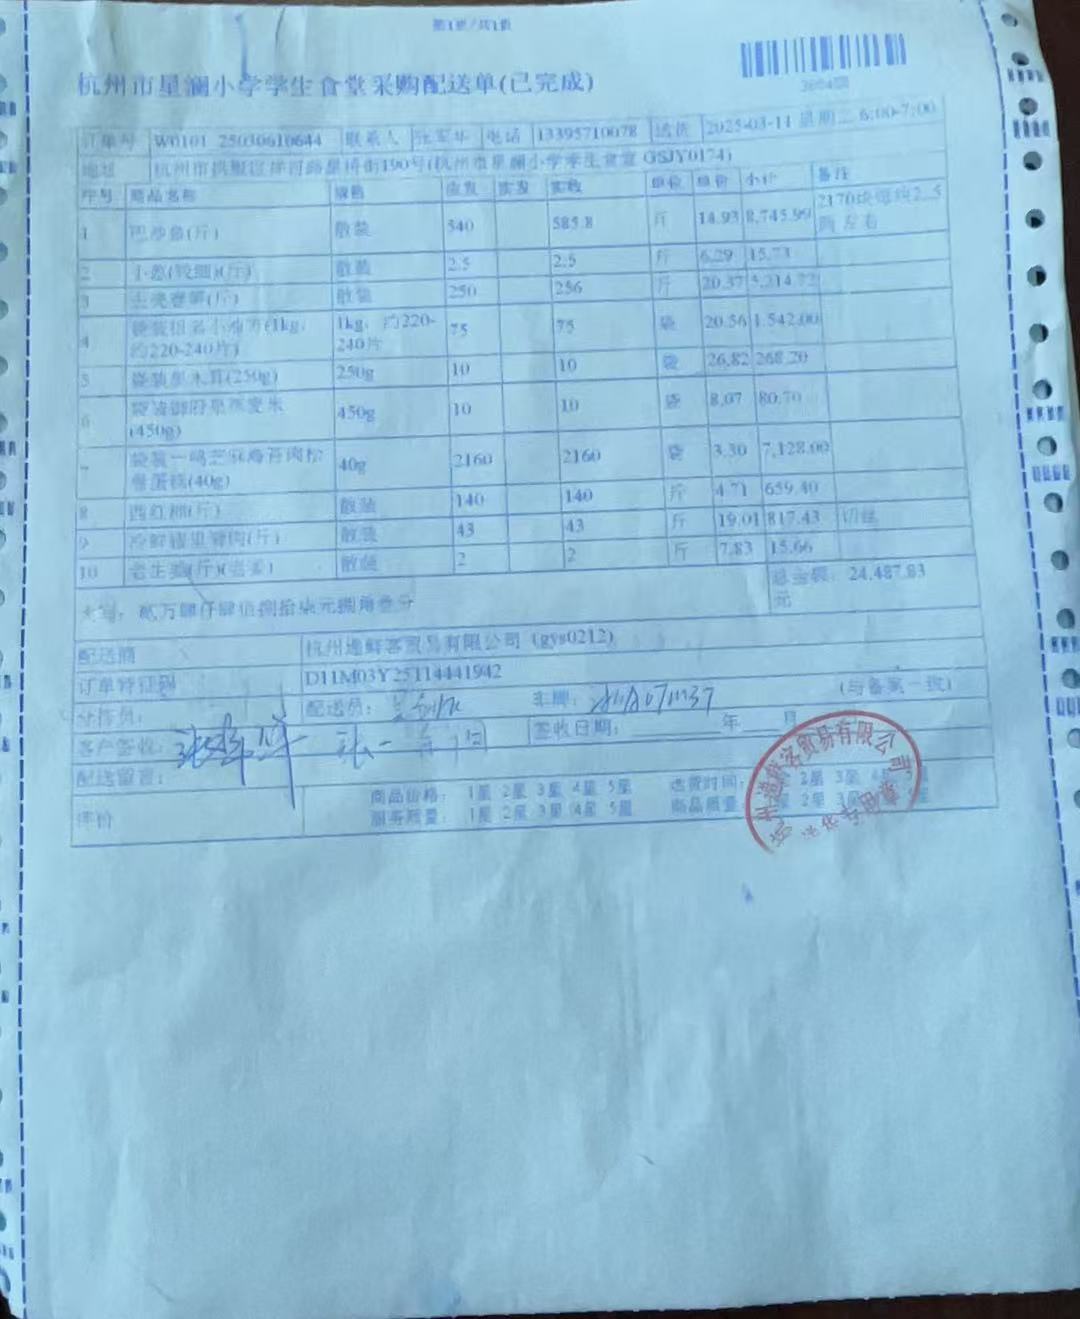 第1页/共1页
杭州市星澜小学学生食堂采购配送单(已完成)
订单号 W0101 25030610644 联系人 电话 13395710078 送货 2025-03-11 星期二 6:00-7:00
地址 190号(杭州市星澜小学学生食堂 GSJY0174)
序号 商品名称 规格 应发 实发 实收 单位 单价 小计 备注
1 巴沙鱼(斤) 散装 540 585.8 斤 14.93 8,745.99 2170块每块2.5两左右
2 小葱(较细)(斤) 散装 2.5 2.5 斤 6.29 15.73
3 (斤) 散装 250 256 斤 20.37 5,214.72
4 (1kg,约220-240片) 1kg,约220-240片 75 75 袋 20.56 1,542.00
5 袋装黑木耳(250g) 250g 10 10 袋 26.82 268.20
6 (450g) 450g 10 10 袋 8.07 80.70
7 袋装一鸣芝麻海苔肉松卷蛋糕(40g) 40g 2160 2160 袋 3.30 7,128.00
8 西红柿(斤) 散装 140 140 斤 4.71 659.40
9 冷鲜猪里脊肉(斤) 散装 43 43 斤 19.01 817.43 切丝
10 老生姜(斤)(老姜) 散装 2 2 斤 7.83 15.66
大写:贰万肆仟肆佰捌拾柒元捌角叁分 总金额:24,487.83元
配送商 杭州 鲜客贸易有限公司 (gys0212)
订单特征码 D11M03Y25114441942
分拣员: 配送员: 车牌: (与备案一致)
客户签收: 签收日期: 年 月
配送留言:
评价 商品价格: 1星 2星 3星 4星 5星 送货时间: 2星 3星 4星
服务质量: 1星 2星 3星 4星 5星 商品质量: 2星 3星
鲜客贸易有限公司
专用章